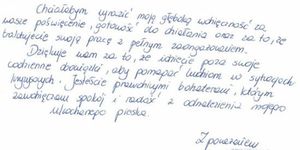 Chciałabym wyrazić moją głęboką wdzięczność za
wasze poświęcenie, gotowość do działania oraz za to, że
traktujecie swoją pracę z pełnym zaangażowaniem.
Dziękuję wam za to, że idziecie poza swoje
codzienne obowiązki, aby pomagać ludziom w sytuacjach
kryzysowych. Jesteście prawdziwymi bohaterami, którym
zawdzięczam spokój i radość z odnalezienia mojego
ukochanego pieska.
Z poważaniem